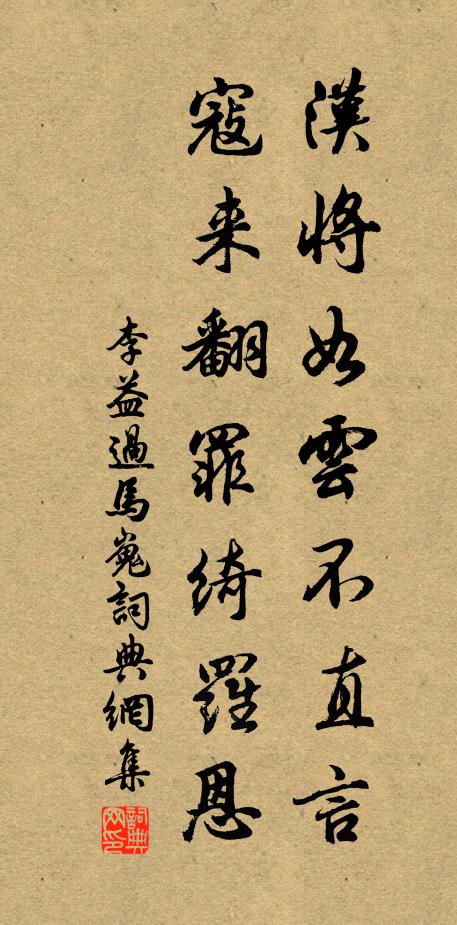 漢將如雲不直言
寇来翻罪綺羅恩
李益過馬嵬詞典網集
詞典網印